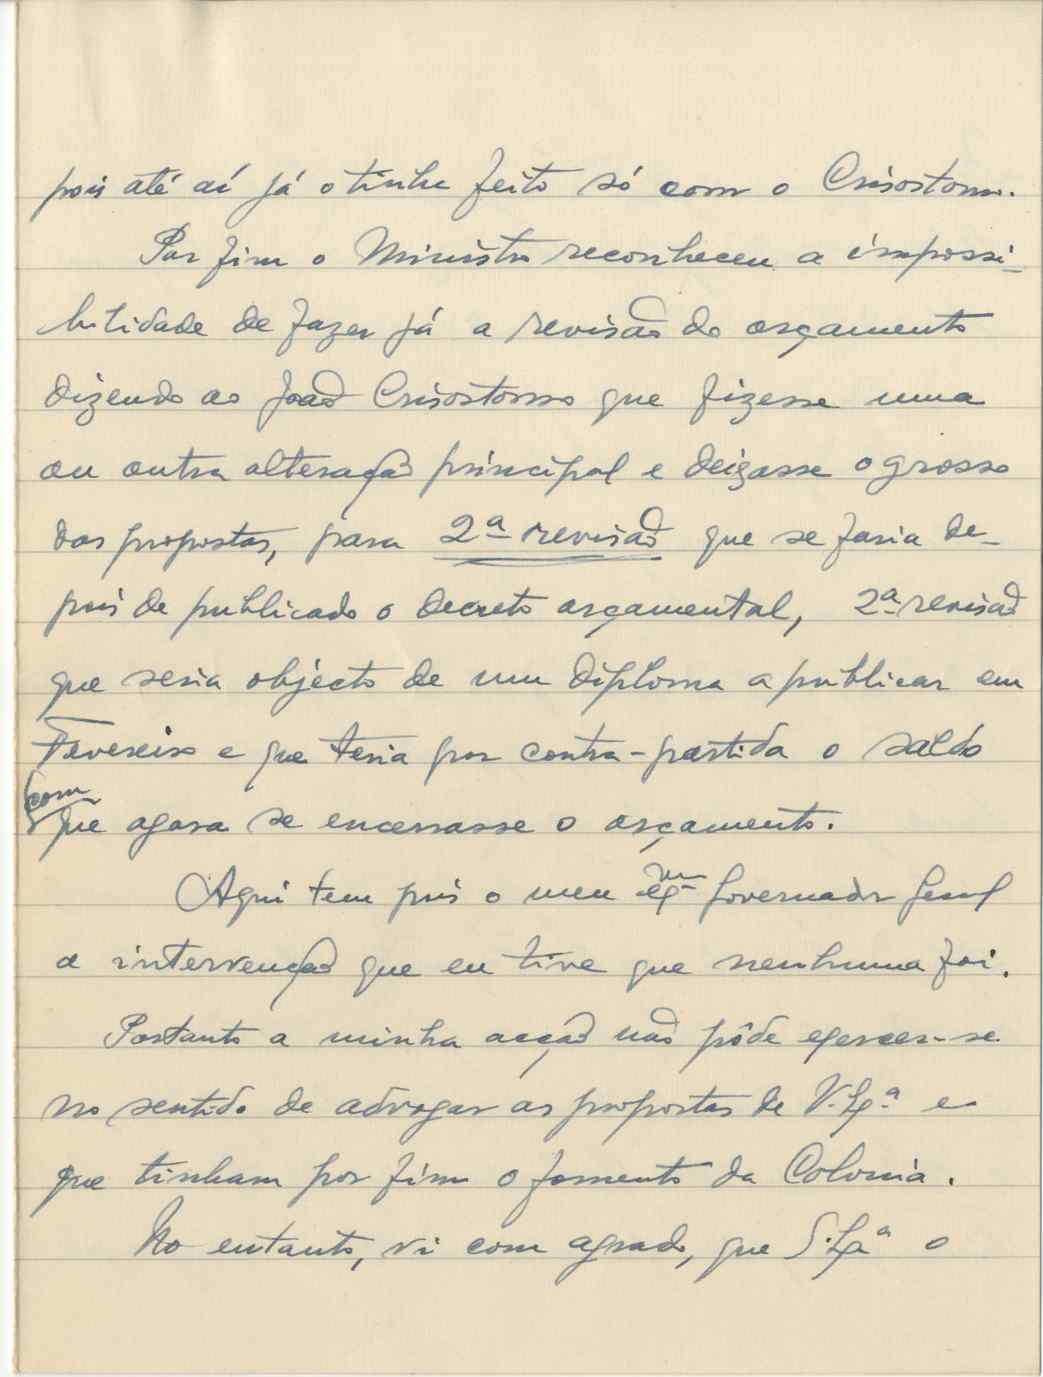 pois até aí já o tinha feito só com o Crisostomo.
Por fim o Ministro reconheceu a impossi-
bilidade de fazer já a revisão do orçamento
dizendo ao João Crisostomo que fizesse uma
ou outra alteração principal e deixasse o grosso
das propostas, para 2ª revisão que se faria de-
pois de publicado o decreto orçamental, 2ª revisão
que seria objecto de um diploma a publicar em
Fevereiro e que teria por contra-partida o saldo
com
que agora se encerrasse o orçamento.
Aqui tem pois o meu Exmo Governador Geral
a intervenção que eu tive que nenhuma foi.
Portanto a minha acção não pôde exercer-se
no sentido de advogar as propostas de V. Exª e
que tinham por fim o fomento da Colonia.
No entanto, vi com agrado, que S. Exª o